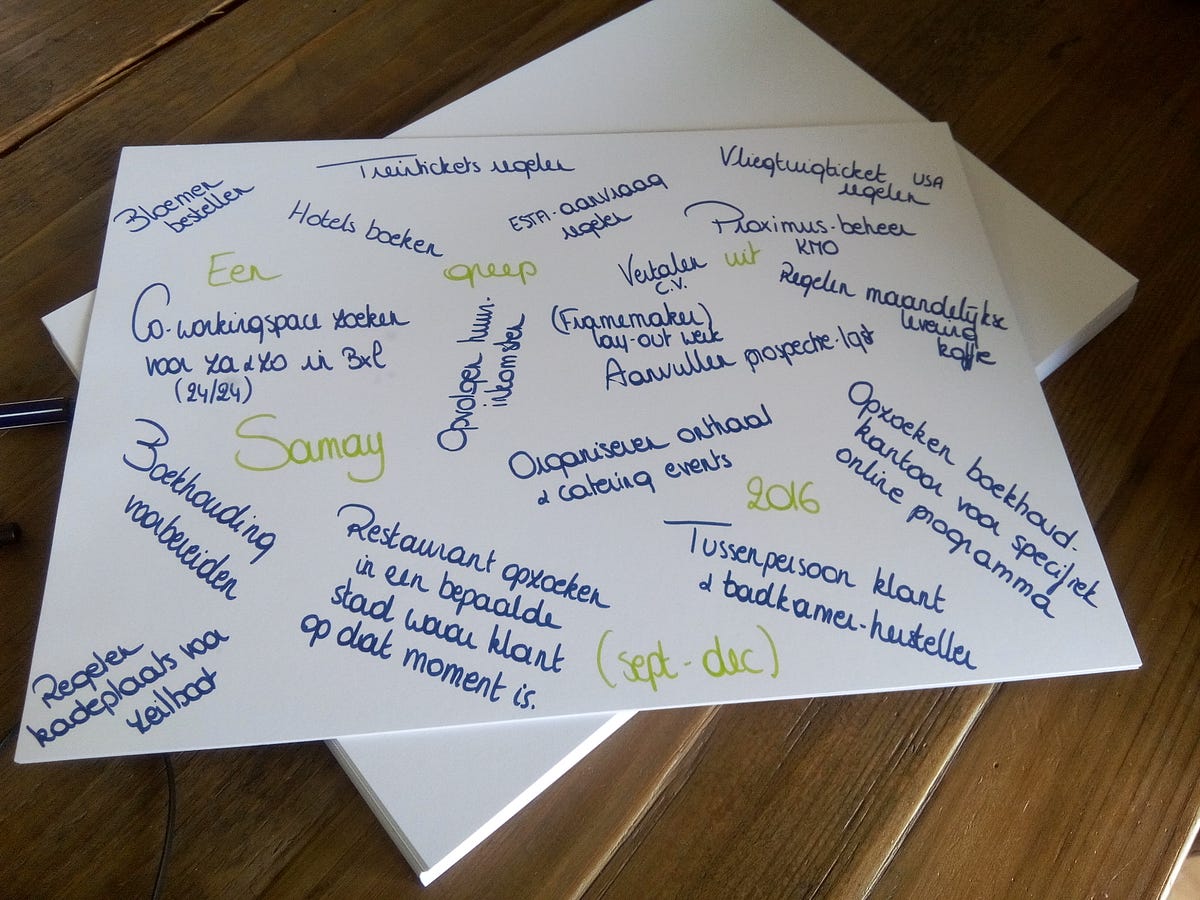 Treintickets regelen
Vliegtuigticket USA
regelen
Bloemen
bestellen
Hotels boeken
ESTA-aanvraag
regelen
Proximus-beheer
KMO
Een greep uit
Vertalen
C.V.
Regelen maandelijkse
levering
koffie
Co-workingspace zoeken
voor za & zo in Bxl
(24/24)
Opvolgen huur-
inkomsten
(Framemaker)
lay-out werk
Aanvullen prospectie-lijst
Samay
Organiseren onthaal
& catering events
2016
Opzoeken boekhoud-
kantoor voor specifiek
online programma
Boekhouding
voorbereiden
Restaurant opzoeken
in een bepaalde
stad waar klant
op dat moment is.
Tussenpersoon klant
& badkamer-hersteller
(sept-dec)
Regelen
kadeplaats voor
zeilboot